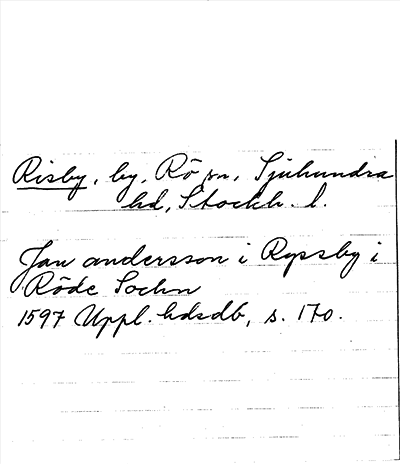 Risby, by, Rö sn, Sjuhundra
hd, Stockh. l.
Jan andersson i Ryssby i
Röde Sochn
1597 Uppl. hdsdb, s. 170.